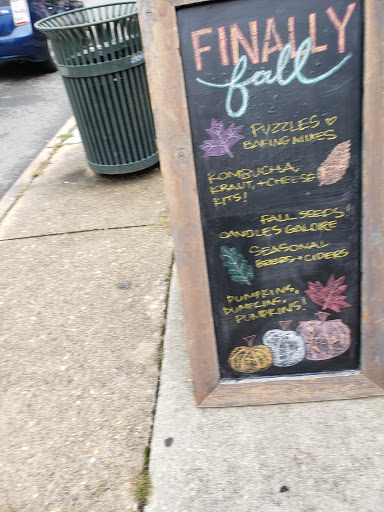 FINALLY
fall
PUZZLES
BAKING MIXES
KOMBUCHA,
KRAUT, + CHEESE
KITS!
FALL SEEDS!
CANDLES GALORE
SEASONAL
BEERS + CIDERS
PUMPKINS,
PUMPKINS,
PUMPKINS!